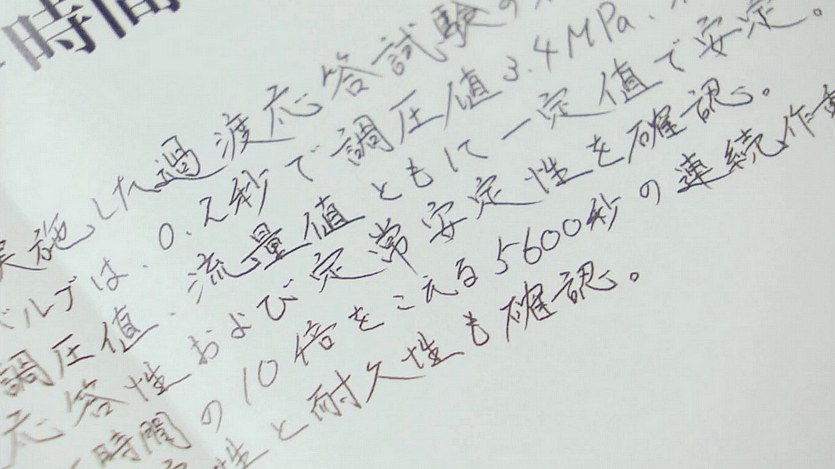 時間
実施した過渡応答試験の
バルブは、0.2秒で調圧値3.4MPa、
調圧値、流量値ともに一定値で安定。
応答性および定常安定性を確認。
時間の10倍をこえる5600秒の連続作
性と耐久性も確認。